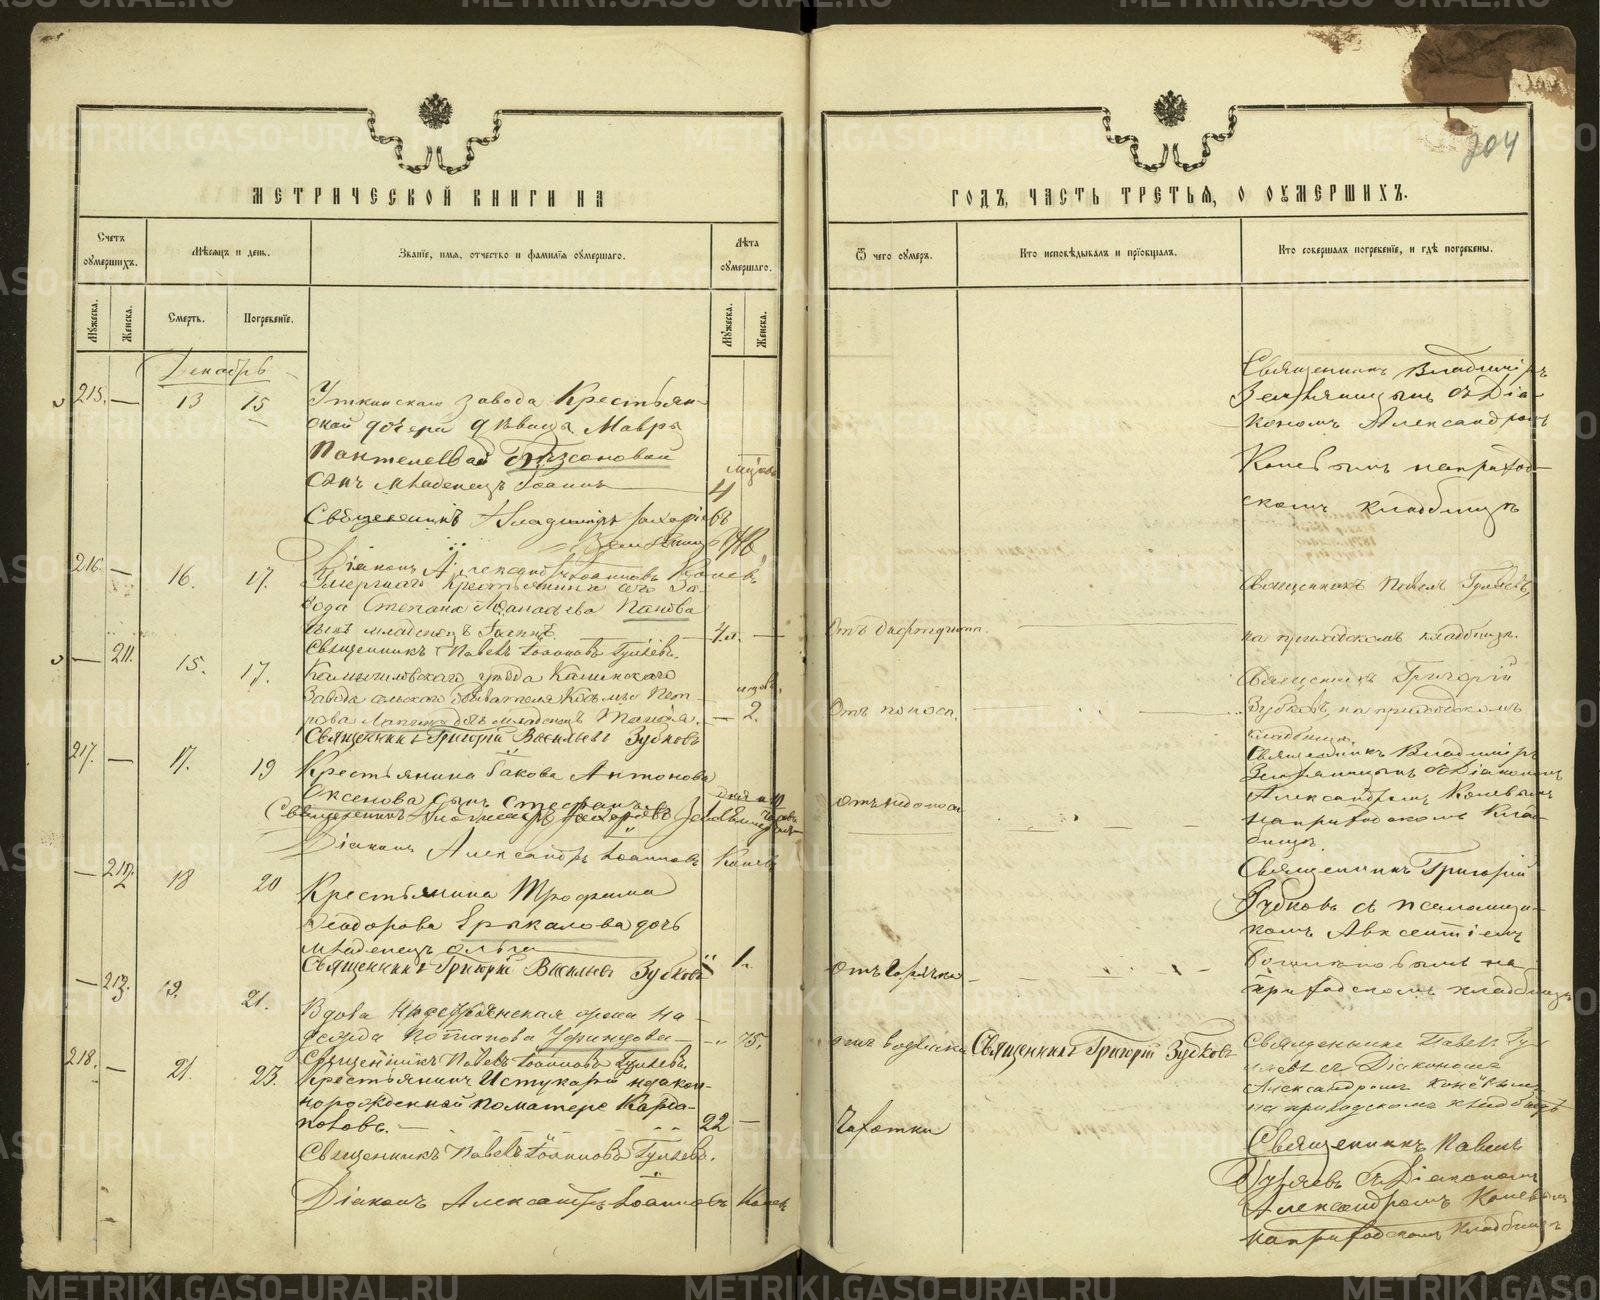 МЕТРИЧЕСКОЙ КНИГИ НА
Счетъ умершихъ.
Мѣсяцъ и день.
Званіе, имя, отчество и фамилія умершаго.
Лѣта умершаго.
Мужеска.
Женска.
Смерть.
Погребеніе.
Мужеска.
Женска.
Декабрь
215. — 13 15
Уткинскаго завода Крестьян-
ской дочери дѣвицы Мавры
Пантелеевой
сынъ младенецъ Іоаннъ
4
Священникъ Владиміръ Захаріевъ
Діаконъ Александръ Іоанновъ Коневъ
216. — 16. 17.
Умершаго крестьянина сего За-
вода Степана Афанасьева Панова
сынъ младенецъ 4 —
Священникъ Павелъ Іоанновъ Гуляевъ.
— 211. 15. 17.
Камышловскаго уѣзда Каменскаго
Завода сельскаго обывателя Козьмы Пет-
рова дочь младенецъ — 2.
Священникъ Григорій Васильевъ Зубковъ
217. — 17. 19
Крестьянина Іакова Антонова
Аксенова сынъ Стефанъ
Священникъ Владиміръ Захаріевъ
Діаконъ Александръ Іоанновъ Коневъ
— 212. 18 20
Крестьянина Трофима
Ѳеодорова Ерыкалова дочь
младенецъ Ольга 1.
Священникъ Григорій Васильевъ Зубковъ
— 213. 19. 21.
Вдова
Потапова 75.
Священникъ Павелъ Іоанновъ Гуляевъ.
218. — 21. 23.
Крестьянинъ Истукарій незакон-
норожденный по матере
22 —
Священникъ Павелъ Іоанновъ Гуляевъ.
Діаконъ Александръ Іоанновъ Коневъ
ГОДЪ, ЧАСТЬ ТРЕТЬЯ, О УМЕРШИХЪ.
204
Ѿ чего умеръ.
Кто исповѣдывалъ и пріобщалъ.
Кто совершалъ погребеніе, и гдѣ погребены.
Священникъ Владиміръ
Земляницынъ съ Діа-
кономъ Александромъ
Коневымъ на приход-
скомъ кладбищѣ
Священникъ Павелъ Гуляевъ,
Отъ дифтерита.
на приходскомъ кладбищѣ.
Священникъ Григорій
Отъ поноса.
Зубковъ, на приходскомъ
кладбищѣ.
Священникъ Владиміръ
Земляницынъ съ Діакономъ
Александромъ Коневымъ
на приходскомъ клад-
бищѣ.
Священникъ Григорій
Зубковъ съ псаломщи-
комъ Авксентіемъ
на
Отъ горячки
приходскомъ кладбищѣ
Священникъ Григорій Зубковъ
Священникъ Павелъ Гу-
ляевъ съ Діакономъ
Александромъ Коневымъ
на приходскомъ кладбищѣ
Чахотки
Священникъ Павелъ
Гуляевъ съ Діакономъ
Александромъ Коневымъ
на приходскомъ кладбищѣ
METRIKI.GASO-URAL.RU